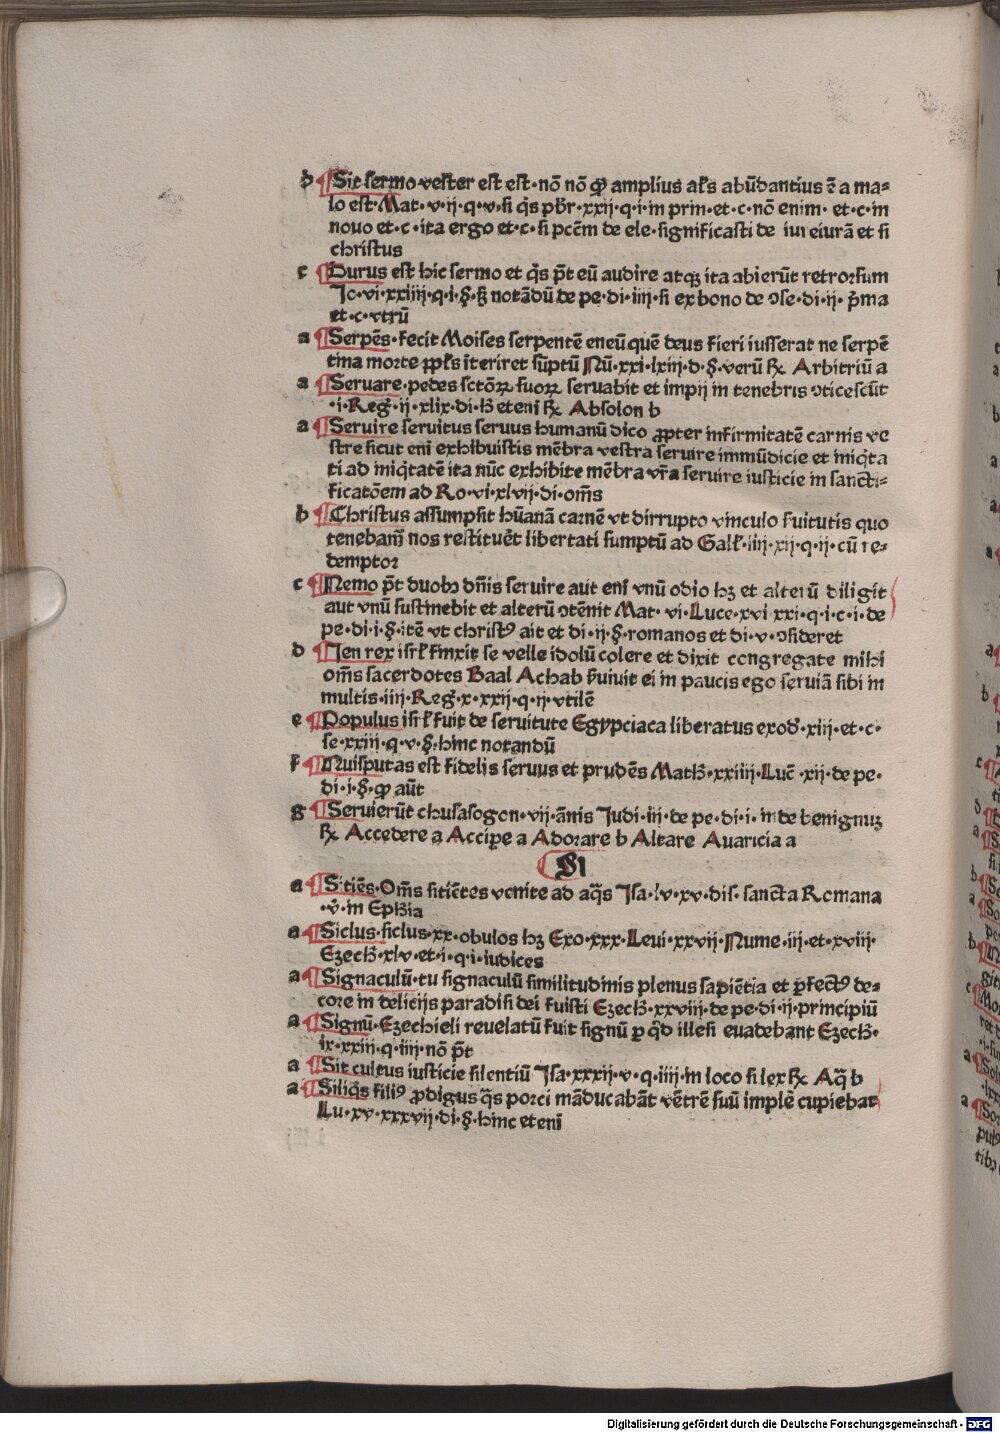 d ¶Sit sermo vester est est·nō nō ꝙ amplius al̄s abūdantius ē a ma⸗
lo est·Mat·v·ij·q·v·si q̄s pbr̄·xxij·q·i·in prin·et·c·nō enim·et·c·in
nouo et·c·ita ergo et·c·si pcēm de ele·significasti de iureiurā et si
christus
c ¶Durus est hic sermo et q̄s pt̄ eū audire atqꝫ ita abierūt retrorsum
Jo·vi·xxiiij·q·i·§·sꝫ notādū de pe·di·iiij·si ex bono de ɔse·di·ij·p̄ma
et·c·vtrū
a ¶Serpēs·fecit Moises serpentē eneū quē deus fieri iusserat ne serpē
tina morte ꝓpl̄s īteriret sūptū Nū·xxi·lxiij·d·§·verū ℞ Arbitriū a
a ¶Seruare·pedes sctōꝝ suoꝝ seruabit et impij in tenebris ɔticescūt
·i·Reg̃·ij·xlix·di·hꝫ eteni ℞ Absolon b
a ¶Seruire seruitus seruus humanū dico ꝓpter infirmitatē carnis ve
stre sicut eni exhibuistis mēbra vestra seruire immūdicie et iniq̄ta
ti ad iniq̄tatē ita nūc exhibite mēbra vr̄a seruire iusticie in sancti⸗
ficatōem ad Ro·vi·xlvij·di·om̄s
b ¶Christus assumpsit hūanā carnē vt dirrupto vinculo ẜuitutis quo
tenebam̄ nos restituēt libertati sumptū ad Gal̄·iiij·xij·q·ij·cū re⸗
demptor
c ¶Nemo pt̄ duobꝫ dn̄is seruire aut eni vnū odio hꝫ et alterū diligit
aut vnū sustinebit et alterū ɔtēnit Mat·vi·Luce·xvi xxi·q·i·c·i·de
pe·di·i·§·itē vt christꝰ ait et di·ij·§·romanos et di·v·ɔsideret
d ¶Jen rex isrl̄ finxit se velle idolū colere et dixit congregate mihi
om̄s sacerdotes Baal Achab ẜuiuit ei in paucis ego seruiā sibi in
multis·iiij·Reg̃·x·xxij·q·ij·vtilē
e ¶Populus isrl̄ fuit de seruitute Egypciaca liberatus exod̄·xiij·et·c·
se·xxiij·q·v·§·hinc notandū
f ¶Nuisputas est fidelis seruus et prudēs Math̄·xxiiij·Luc̄·xij·de pe·
di·i·§·ꝙ aūt
g ¶Seruierūt chusasogon·vij·ānis Judi·iij·de pe·di·i·inde benignuꝫ
℞ Accedere a Accipe a Adorare b Altare Auaricia a
SI
a ¶Sitiēs·Om̄s sitiētes venite ad aq̄s Jsa·lv·xv·dis·sancta Romana
·v̄·in Eph̄ia
a ¶Siclus·siclus·xx·obulos hꝫ Exo·xxx·Leui·xxvij·Nume·iij·et·xviij·
Ezech̄·xlv·et·i·q·i·iudices
a ¶Signaculū·tu signaculū similitudinis plenus sapiētia et ꝑfectꝰ de⸗
core in delicijs paradisi dei fuisti Ezech̄·xxviij·de pe·di·ij·principiū
a ¶Signū·Ezechieli reuelatū fuit signū ꝑ qd̄ illesi euadebant Ezech̄·
ix·xxiij·q·iiij·nō pt̄
a ¶Sit cultus iusticie silentiū Jsa·xxxij·v·q·iiij·in loco si lex ℞ Aq̄ b
a ¶Siliq̄s filiꝰ ꝓdigus q̄s porci māducabāt vētrē suū implē cupiebat
Lu·xv·xxxvij·di·§·hinc et eni
Digitalisierung gefördert durch die Deutsche Forschungsgemeinschaft - DFG